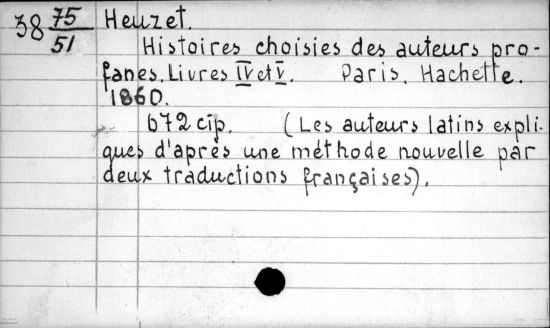 38 75/51 Heuzet.
Histoires choisies des auteurs pro-
fanes. Livres IV et V. Paris, Hachette.
1860.
672 cip. (Les auteurs latins expli-
ques d'après une méthode nouvelle par
deux traductions françaises).